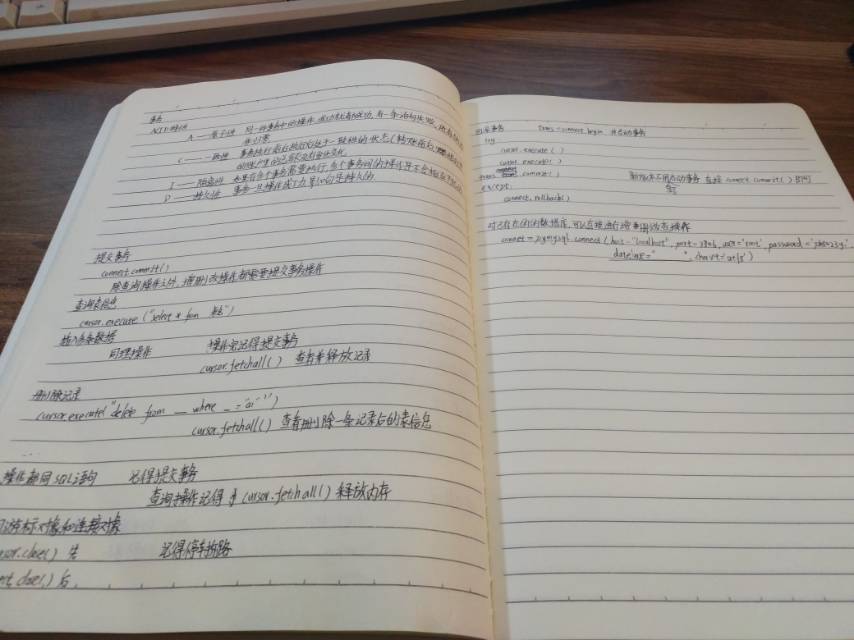 事务
ACID特性
A —— 原子性 同一个事务中的操作,
C —— 一致性 事务执行前后都处于一致性的状态
I —— 隔离性
D —— 持久性 事务一旦操作成功,是持久的
提交事务
connect.commit()
除查询操作之外,增删改操作都需要提交事务操作
查询表信息
cursor.execute("select * from 表名")
插入多条数据
同理操作 操作完记得提交事务
cursor.fetchall() 查看并释放记录
删除记录
cursor.execute("delete from __ where _='a'")
cursor.fetchall() 查看删除一条记录后的表信息
操作都同SQL语句 记得提交事务
查询操作记得 cursor.fetchall() 释放内存
游标对象和连接对象
sor.close() 先 记得
ct.close() 后
回滚事务 trans = connect.begin 开启动事务
try
cursor.execute()
cursor.execute()
commit() 新版本不用启动事务 直接 connect.commit() 即可
except:
connect.rollback()
对已存在的的数据库,可以直接进行增删改查操作
connect = pymysql.connect(host='localhost', port=3306, user='root', password=
database=" ", charset='utf8')